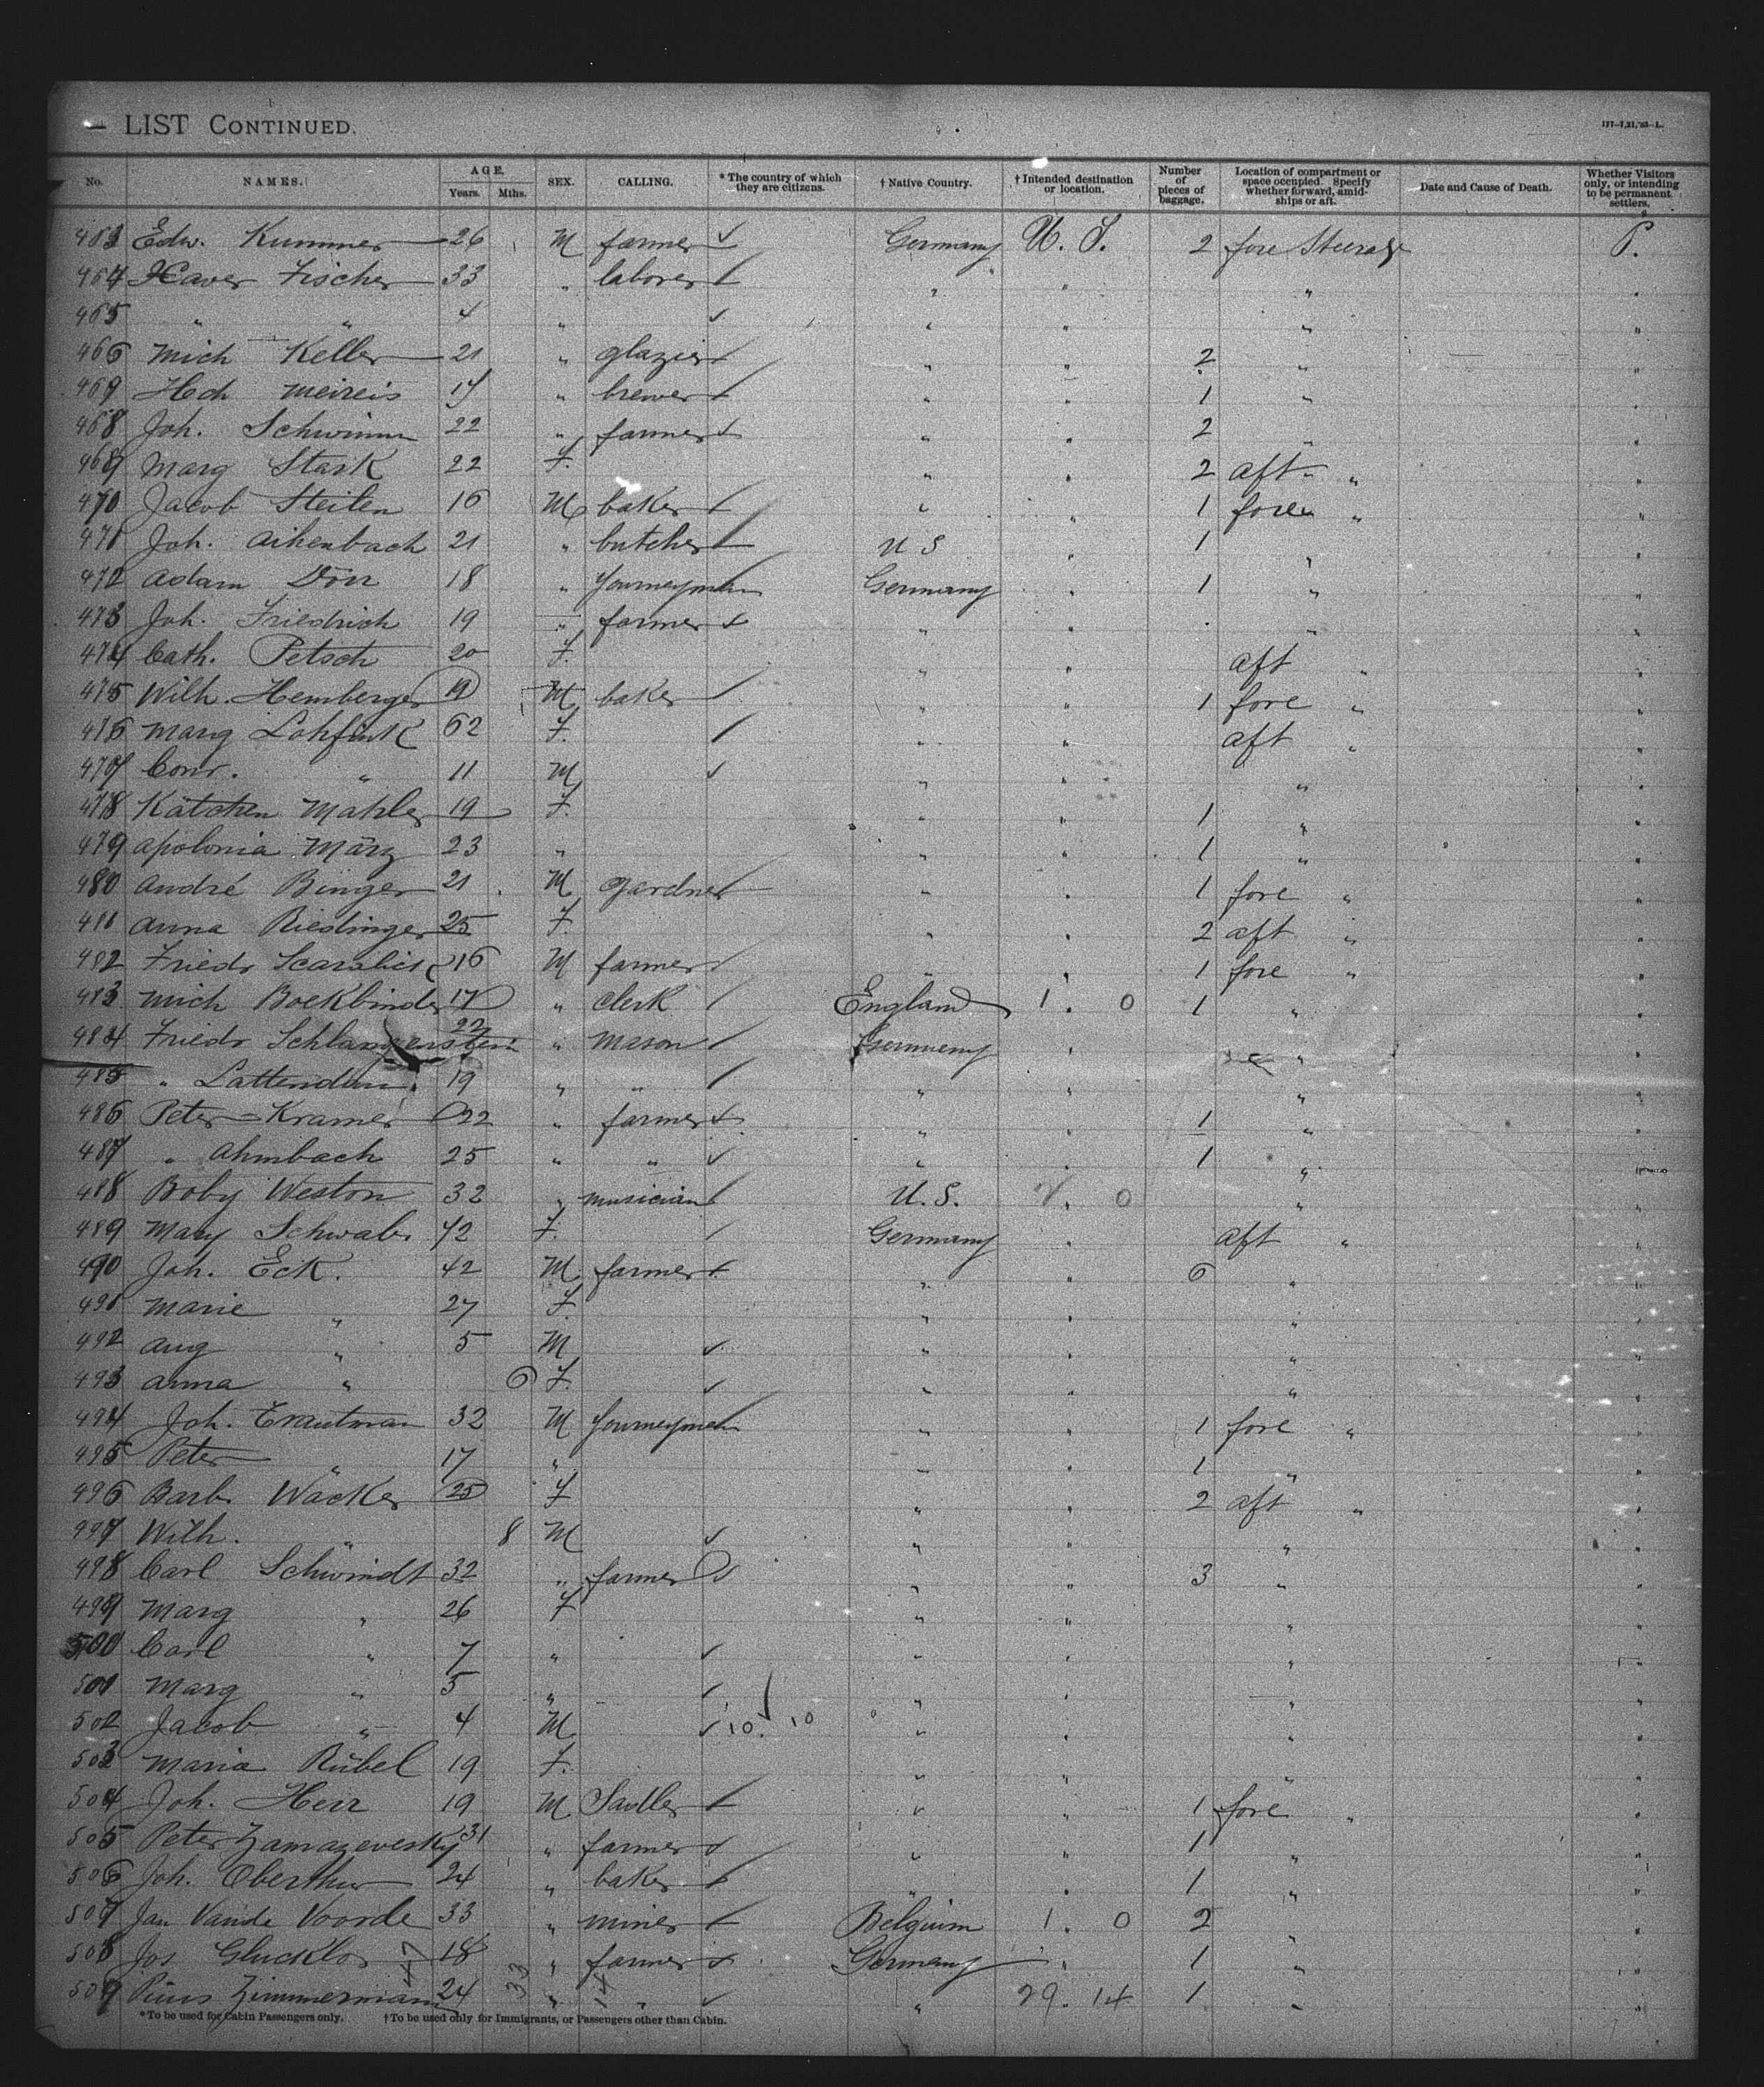 — LIST CONTINUED.
No. NAMES. AGE. Years. Mths. SEX. CALLING. * The country of which they are citizens. † Native Country. † Intended destination or location. Number of pieces of baggage. Location of compartment or space occupied. Specify whether forward, amidships or aft. Date and Cause of Death. Whether Visitors only, or intending to be permanent settlers.
463 Edw. Kummer 26 M farmer ✓ Germany U. S. 2 fore Steerage P.
464 Xaver Fischer 33 " laborer " " " "
465 " " 4 " ✓ " " " "
466 Mich Keller 21 " glazier " " 2 " "
467 Hch Meireis 17 " brewer " " 1 " "
468 Joh. Schwimm 22 " farmer " " 2 " "
469 Marg Stark 22 F. " " 2 aft " "
470 Jacob Steiten 16 M baker " " 1 fore " "
471 Joh. Aihenbach 21 " butcher U S " 1 " "
472 Adam Dörr 18 " Journeyman Germany " 1 " "
473 Joh. Friedrich 19 " farmer " " " "
474 Cath. Petsch 20 F. " " aft " "
475 Wilh. Hemberger 19 M baker " " 1 fore " "
476 Marg Lohfink 62 F. " " aft " "
477 Conr. " 11 M ✓ " " " "
478 Kätchen Mahler 19 F. " " 1 " "
479 Apolonia März 23 " " " 1 " "
480 André Binger 21 M gardner " " 1 fore " "
481 Anna Riedinger 25 F. " " 2 aft " "
482 Friedr Scarabick 16 M farmer " " 1 fore " "
483 Mich Bockbinder 17 " clerk England 1. 0 1 " "
484 Friedr Schlangenstein 22 " mason Germany " " "
485 " Lattendun 19 " " " " " "
486 Peter Kramer 22 " farmer " " 1 " "
487 " Ahmbach 25 " " ✓ " " 1 " "
488 Boby Weston 32 " musician U. S. 1. 0 " "
489 Mary Schwab 42 F. Germany " aft " "
490 Joh. Eck. 42 M farmer " " 6 " "
491 Marie " 27 F " " " "
492 Aug " 5 M ✓ " " " "
493 Anna " 6 F. ✓ " " " "
494 Joh. Trautman 32 M Journeyman " " 1 fore " "
495 Peter " 17 " " " 1 " "
496 Barb. Wacker 25 F " " 2 aft " "
497 Wilh. " 8 M ✓ " " " "
498 Carl Schwindt 32 " farmer " " 3 " "
499 Marg " 26 F " " " "
500 Carl " 7 " ✓ " " " "
501 Marg " 5 " ✓ " " " "
502 Jacob " 4 M ✓ 10. 10 " " " "
503 Maria Rübel 19 F. " " " "
504 Joh. Herr 19 M Sadler " " 1 fore " "
505 Peter Zamazevesky 31 " farmer " " 1 " "
506 Joh. Oberthur 24 " baker " " 1 " "
507 Jan Vande Voorde 33 " miner Belgium 1. 0 2 " "
508 Jos Glucklos 18 " farmer Germany " 1 " "
509 Pius Zimmermann 24 " " ✓ " 29. 14 1 " "
47 33 14
*To be used for Cabin Passengers only. †To be used only for Immigrants, or Passengers other than Cabin.